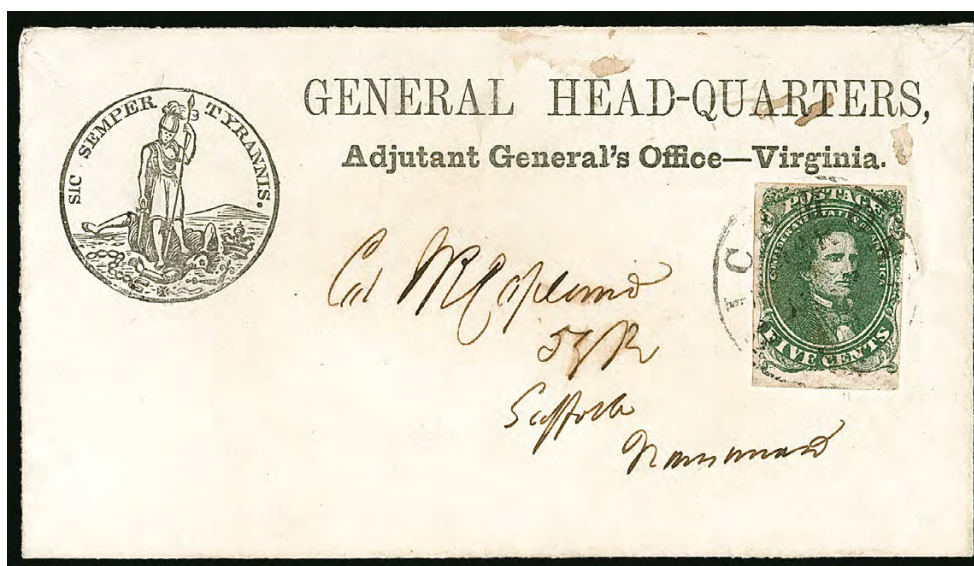 SIC SEMPER TYRANNIS.
GENERAL HEAD-QUARTERS,
Adjutant General's Office—Virginia.
POSTAGE
CONFEDERATE STATES OF AMERICA
FIVE CENTS
Col Copland
Suffolk
Nansemond